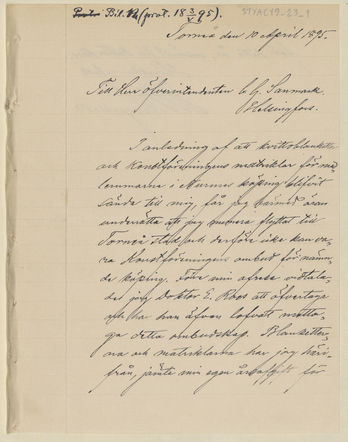 Bil. (prot. 18 3/V 95).
Torneå den 10 April 1895.
Till Herr Öfverintendenten C. G. Sanmark.
Helsingfors.
I anledning af att kvittoblanketter
och Konstföreningens matriklar för med
lemmarna i Nurmes köping blifvit
sända till mig, får jag härmed äran
underrätta att jag numera flyttat till
Torneå stad och derföre icke kan va-
ra Konstföreningens ombud för nämn-
de köping. Före min afresa vidtala-
des jag Doktor E. Roos att öfvertaga
och har han äfven lofvat motta-
ga detta ombudskap. Blanketter-
na och matriklarna har jag häri-
från, jämte min egen årsafgift för